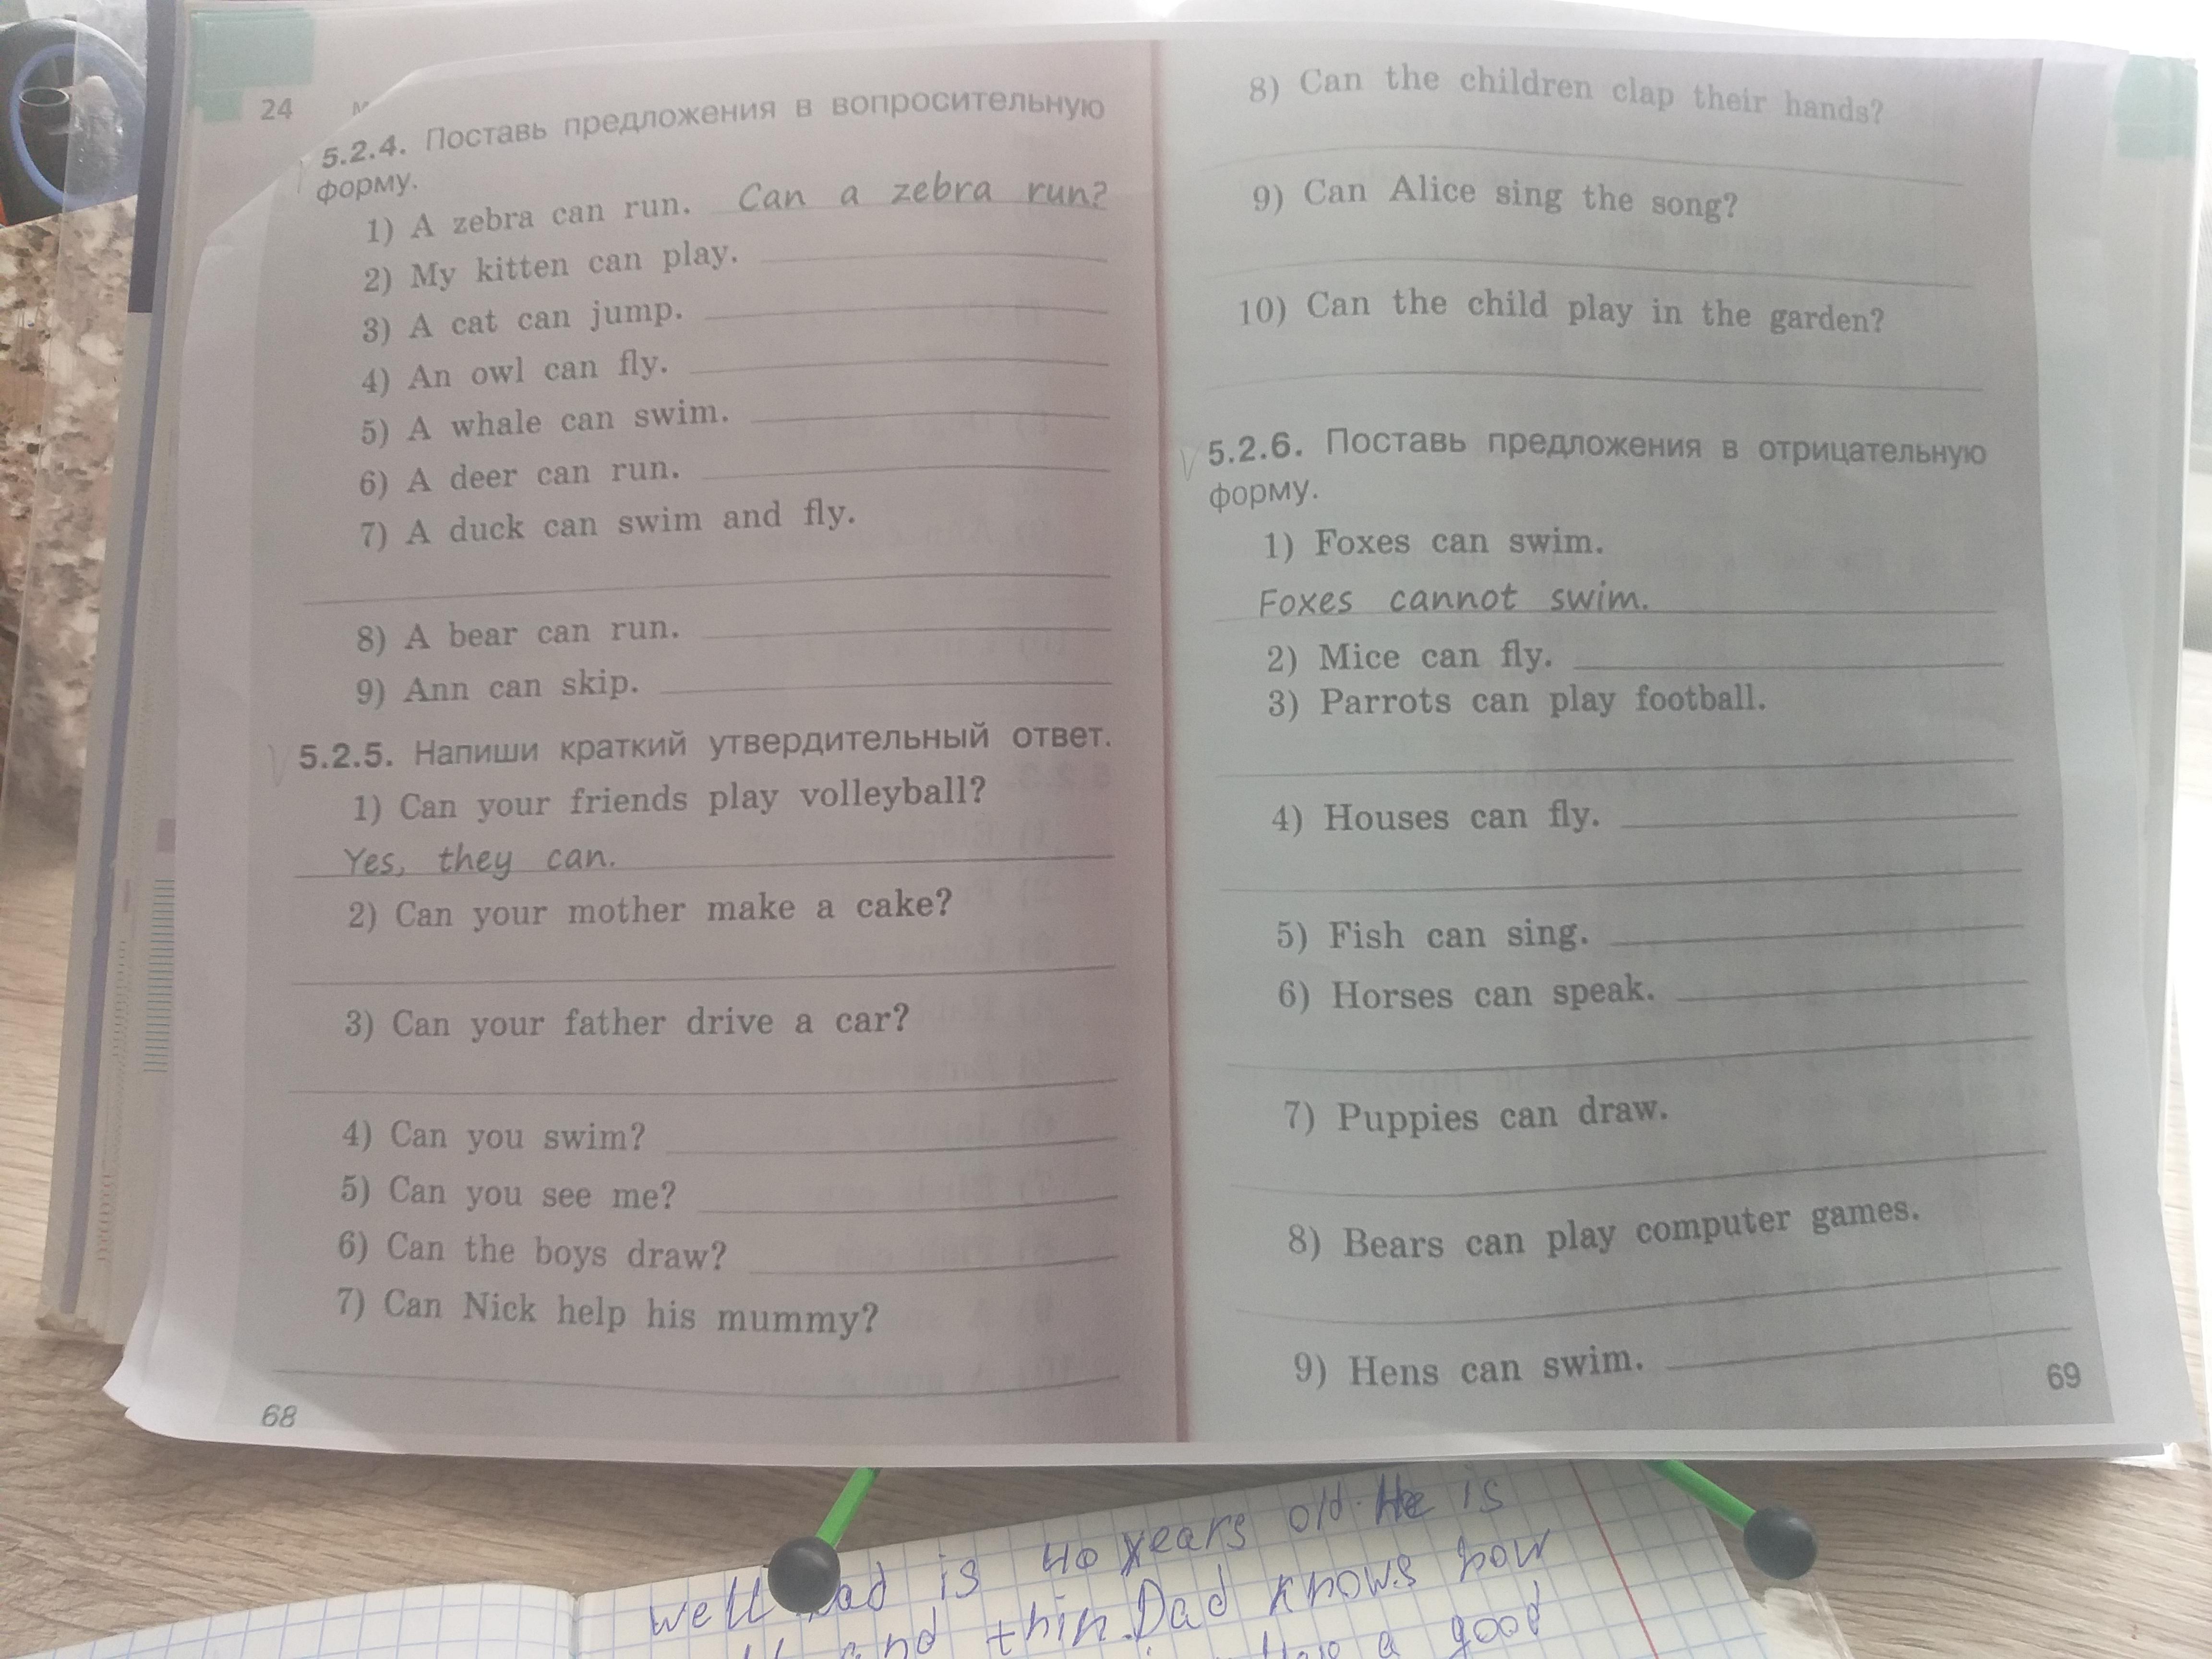 24
5.2.4. Поставь предложения в вопросительную
форму.
1) A zebra can run. Can a zebra run?
2) My kitten can play.
3) A cat can jump.
4) An owl can fly.
5) A whale can swim.
6) A deer can run.
7) A duck can swim and fly.
8) A bear can run.
9) Ann can skip.
5.2.5. Напиши краткий утвердительный ответ.
1) Can your friends play volleyball?
Yes, they can.
2) Can your mother make a cake?
3) Can your father drive a car?
4) Can you swim?
5) Can you see me?
6) Can the boys draw?
7) Can Nick help his mummy?
68
8) Can the children clap their hands?
9) Can Alice sing the song?
10) Can the child play in the garden?
5.2.6. Поставь предложения в отрицательную
форму.
1) Foxes can swim.
Foxes cannot swim.
2) Mice can fly.
3) Parrots can play football.
4) Houses can fly.
5) Fish can sing.
6) Horses can speak.
7) Puppies can draw.
8) Bears can play computer games.
9) Hens can swim.
69
well Dad is 40 years old. He is
and thin. Dad knows how
a good